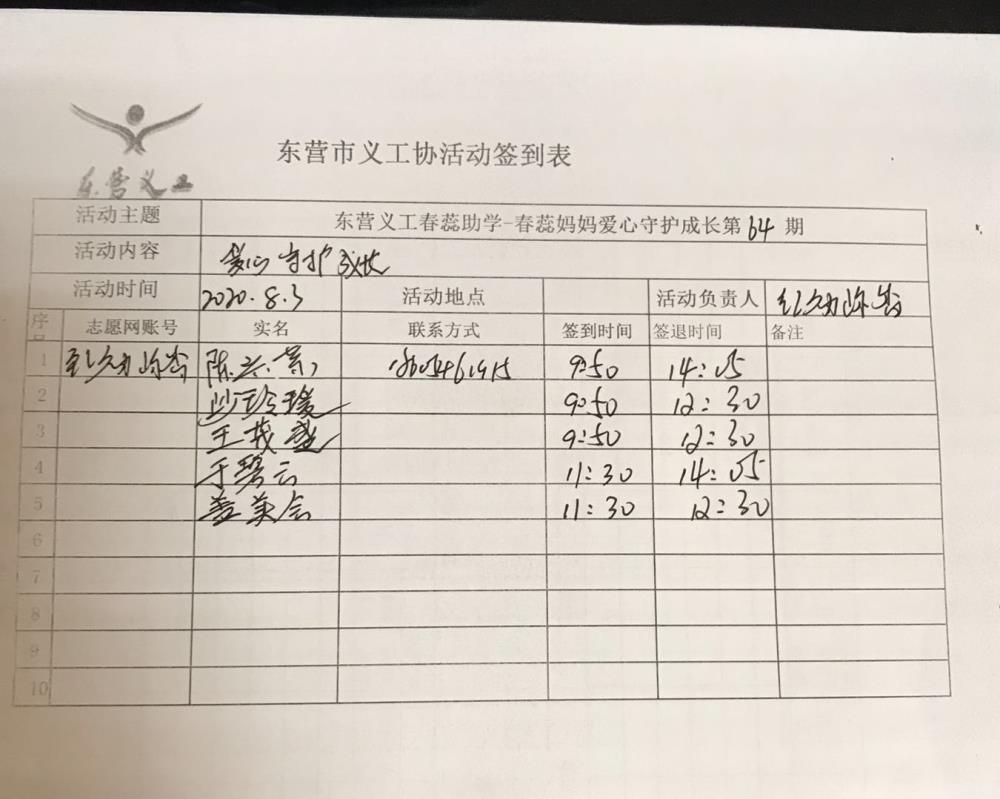 东营义工
东营市义工协活动签到表
活动主题 东营义工春蕊助学-春蕊妈妈爱心守护成长第64期
活动内容 爱心守护成长
活动时间 2020.8.3 活动地点 活动负责人
序号 志愿网账号 实名 联系方式 签到时间 签退时间 备注
1 陈兴 9:50 14:05
2 玲瑷 9:50 12:30
3 王茂盛 9:50 12:30
4 于碧云 11:30 14:05
5 盖美会 11:30 12:30
6
7
8
9
10